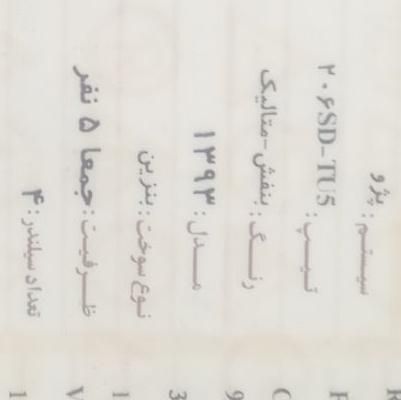 سیستم: پژو
تیپ: ۲۰۶SD-TU5
رنگ: بنفش-متالیک
مدل: ۱۳۹۳
نوع سوخت: بنزین
ظرفیت: جمعا ۵ نفر
تعداد سیلندر: ۴